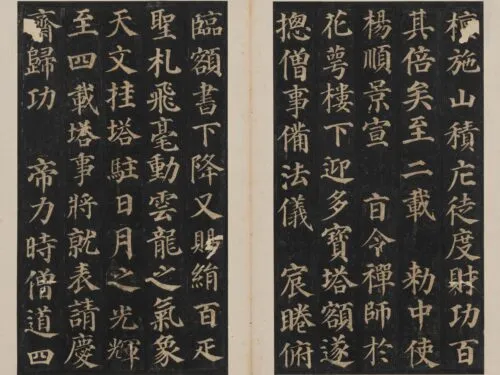 檀施山積庀徒度財功百
其倍矣至二載 勅中使
楊順景宣 旨令禪師於
花萼樓下迎多寶塔額遂
摠僧事備法儀 宸睠俯
臨額書下降又賜絹百疋
聖札飛毫動雲龍之氣象
天文挂塔駐日月之光輝
至四載塔事將就表請慶
齋歸功 帝力時僧道四